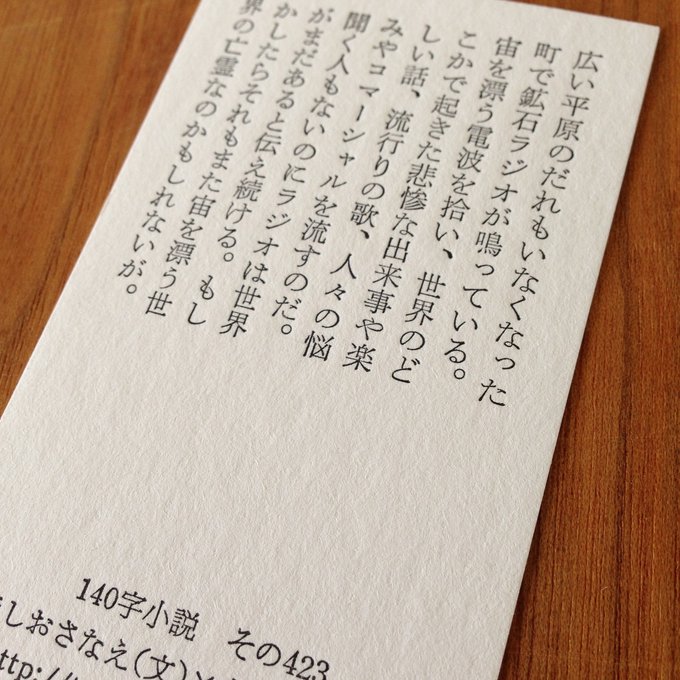 広い平原のだれもいなくなった
町で鉱石ラジオが鳴っている。
宙を漂う電波を拾い、世界のど
こかで起きた悲惨な出来事や楽
しい話、流行りの歌、人々の悩
みやコマーシャルを流すのだ。
聞く人もないのにラジオは世界
がまだあると伝え続ける。もし
かしたらそれもまた宙を漂う世
界の亡霊なのかもしれないが。
140字小説 その423
しおさなえ(文)
ttp://